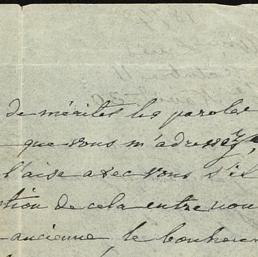 de mérites les paroles
que vous m'adressez
l'aise avec vous s'il
tion de cela entre nou
ancienne le bonheur